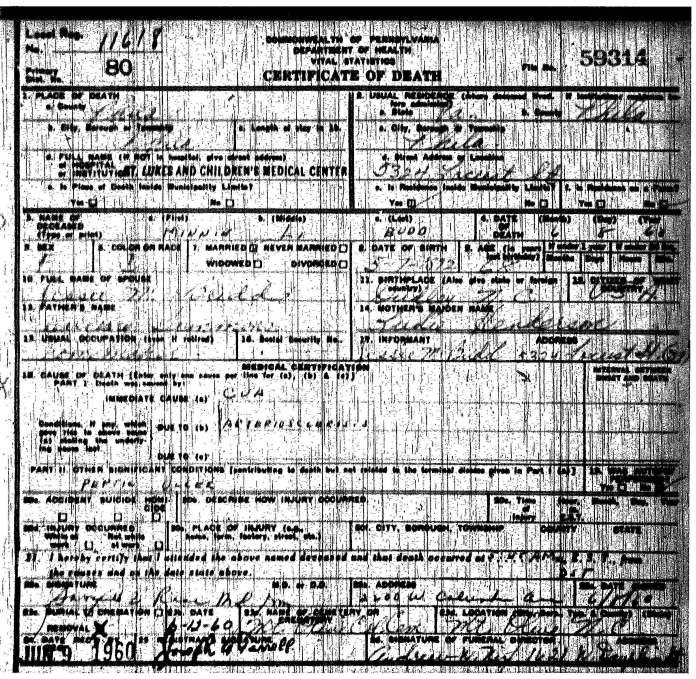 Local Reg. No. 11618
COMMONWEALTH OF PENNSYLVANIA
DEPARTMENT OF HEALTH
VITAL STATISTICS
File No. 59314
Primary Dist. No. 80
CERTIFICATE OF DEATH
1. PLACE OF DEATH
a. County Phila
2. USUAL RESIDENCE (Where deceased lived. If institution: residence before admission)
a. State Pa. b. County Phila
b. City, Borough or Township Phila
c. Length of stay in 1b.
c. City, Borough or Township Phila
d. FULL NAME (If NOT in hospital, give street address)
OF HOSPITAL OR INSTITUTION ST. LUKES AND CHILDREN'S MEDICAL CENTER
d. Street Address or Location 5324 Locust St
e. Is Place of Death Inside Municipality Limits?
Yes No
e. Is Residence Inside Municipality Limits?
Yes No
f. Is Residence on a Farm?
Yes No
3. NAME OF DECEASED (Type or print)
a. (First) MINNIE
b. (Middle) L.
c. (Last) BUDD
4. DATE OF DEATH (Month) 6 (Day) 8 (Year) 60
5. SEX F
6. COLOR OR RACE
7. MARRIED NEVER MARRIED
WIDOWED DIVORCED
8. DATE OF BIRTH
9. AGE (In years last birthday) 68
If under 1 year Months Days
Hours Min.
10. FULL NAME OF SPOUSE
Jessee M. Budd
11. BIRTHPLACE (Also give state or foreign country)
N C
12. CITIZEN OF WHAT COUNTRY USA
13. FATHER'S NAME
14. MOTHER'S MAIDEN NAME
Henderson
15. USUAL OCCUPATION (Even if retired)
16. Social Security No.
17. INFORMANT ADDRESS
Jessee M Budd 5324 Locust St
MEDICAL CERTIFICATION
18. CAUSE OF DEATH [Enter only one cause per line for (a), (b) & (c)]
PART I. Death was caused by:
IMMEDIATE CAUSE (a) CVA
INTERVAL BETWEEN ONSET AND DEATH
Conditions, if any, which gave rise to above cause (a) stating the underlying cause last
DUE TO (b) ARTERIOSCLEROSIS
DUE TO (c)
PART II. OTHER SIGNIFICANT CONDITIONS [contributing to death but not related to the terminal disease given in Part I (a)]
PEPTIC ULCER
19. WAS AUTOPSY
Yes No
20a. ACCIDENT SUICIDE HOMICIDE
20b. DESCRIBE HOW INJURY OCCURRED.
20c. Time of Injury Hour, Month, Day, Year
20d. INJURY OCCURRED
While at work Not while at work
20e. PLACE OF INJURY (e.g., home, farm, factory, street, etc.)
20f. CITY, BOROUGH, TOWNSHIP COUNTY STATE
21. I hereby certify that I attended the above named deceased and that death occurred at
from the causes and on the date stated above.
22a. SIGNATURE M.D. or D.O.
22b. ADDRESS
2600 W. Columbia Ave
22c. DATE SIGNED
6/8/60
23a. BURIAL CREMATION
REMOVAL X
23b. DATE
6-13-60
23c. NAME OF CEMETERY OR CREMATORY
23d. LOCATION
Mt Olive N.C.
24. DATE REC'D
JUN 9 1960
25. REGISTRAR'S SIGNATURE
26. SIGNATURE OF FUNERAL DIRECTOR ADDRESS